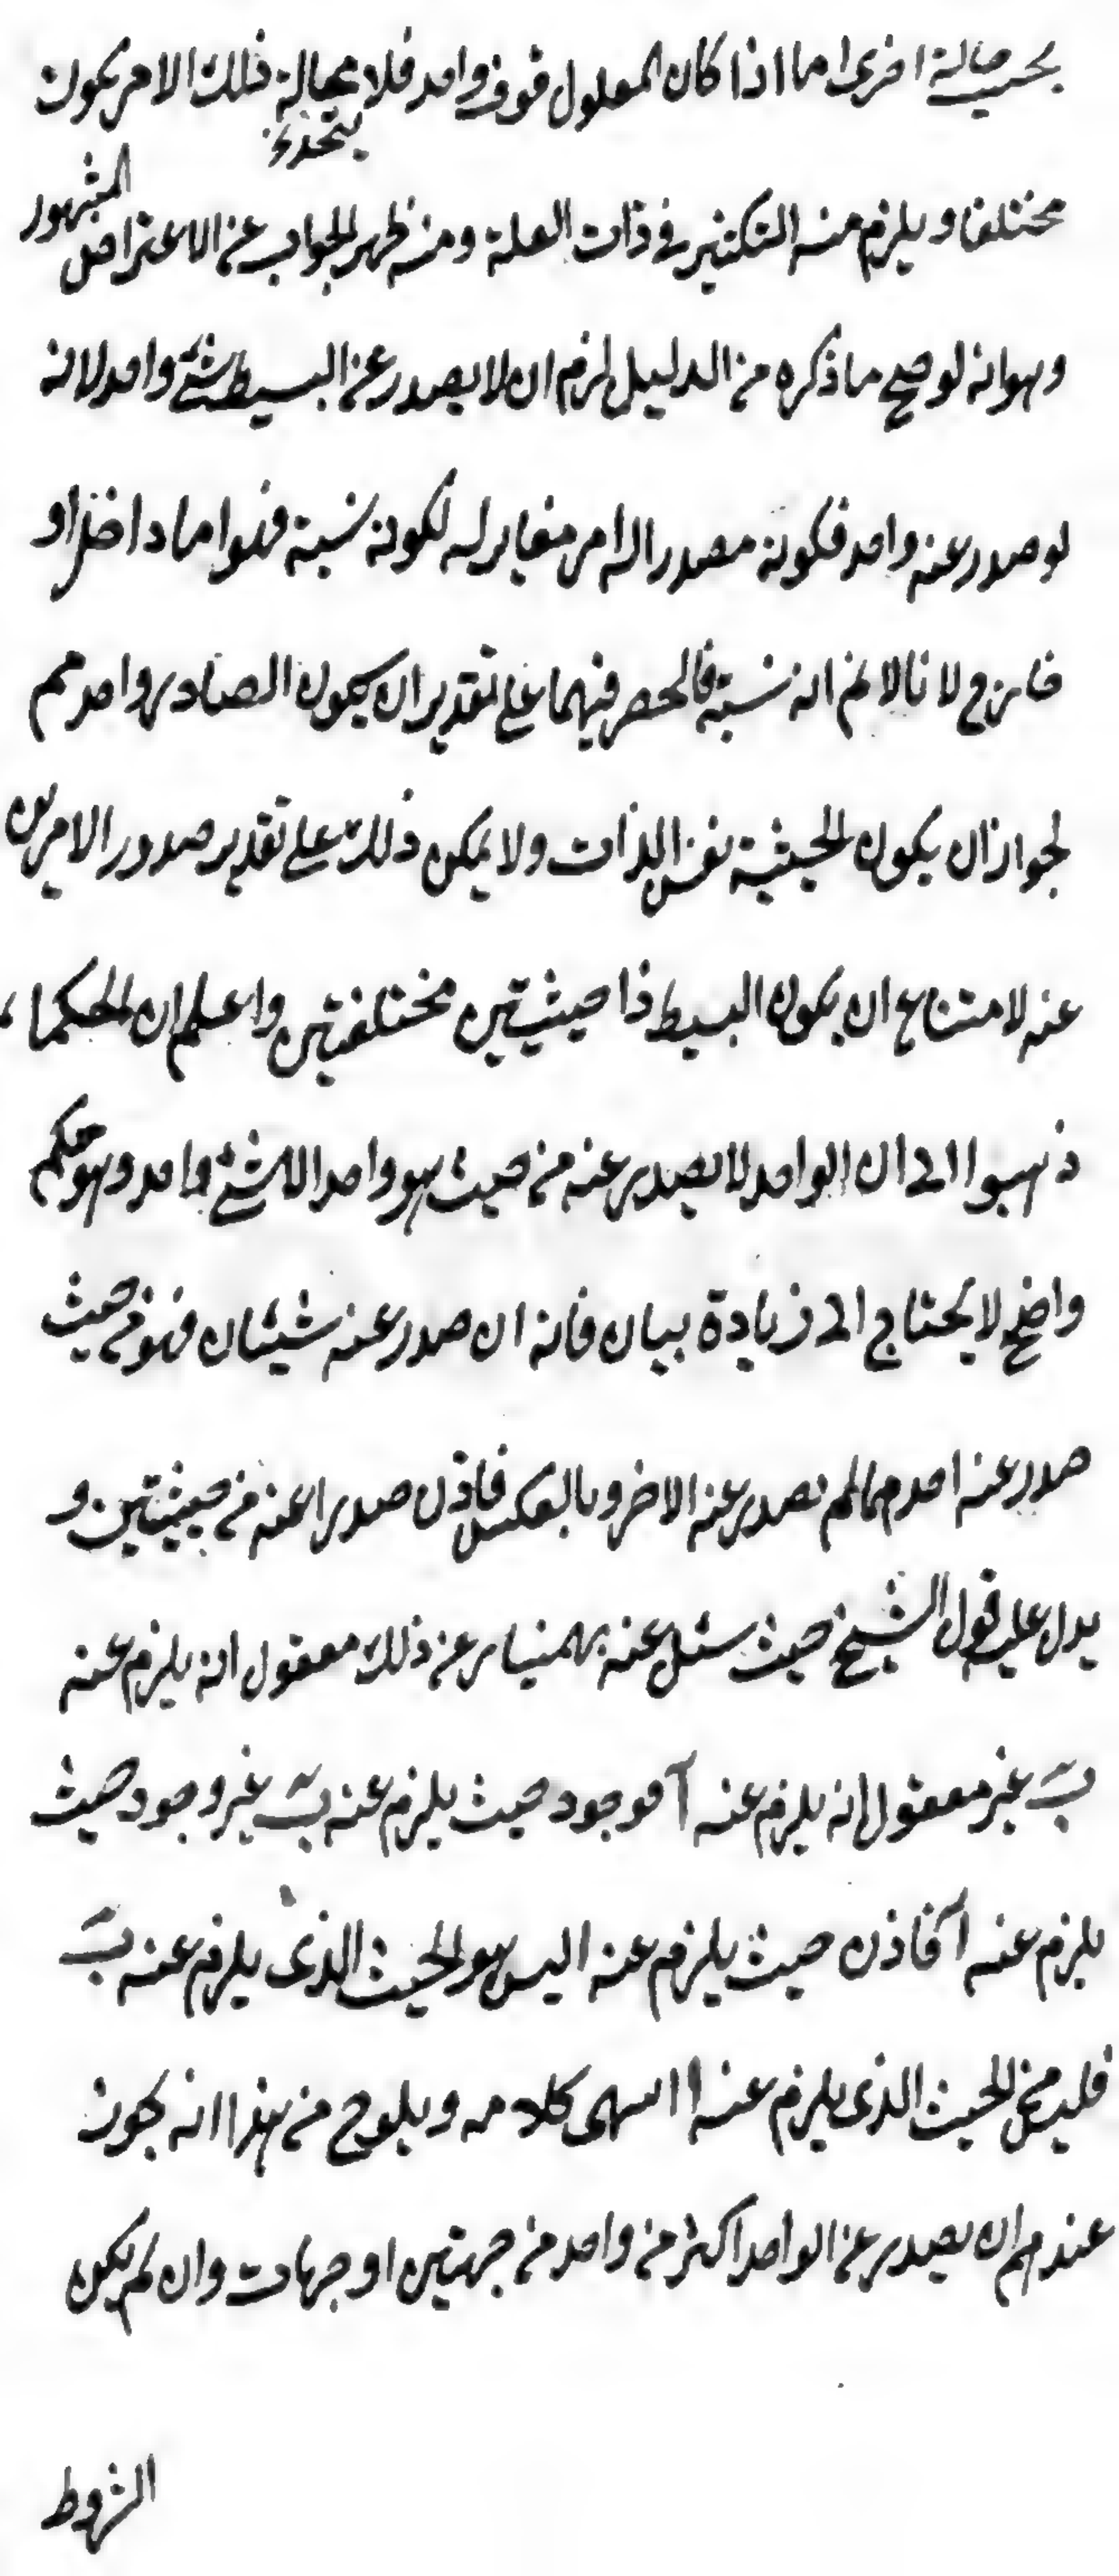 بحسب حالة اخرى اما اذا كان المعلول فوق واحد فلا محالة ذلك الامر يكون
مختلفا ويلزم منه التكثير في ذات العلة ومنه ظهر الجواب عن الاعتراض المشهور
وهو انه لو صح ما ذكره من الدليل لزم ان لا يصدر عن البسيط شئ واحد لانه
لو صدر عنه واحد فكونه مصدرا لامر مغاير له لكونه نسبة فهو اما داخل او
خارج لانا لا نم انه نسبة فالحصر فيهما على تقدير ان يكون الصادر واحد مم
لجواز ان يكون الحيثية نفس الذات ولا يمكن ذلك على تقدير صدور الامرين
عنه لامتناع ان يكون البسيط ذا حيثيتين مختلفتين واعلم ان الحكماء
ذهبوا الى ان الواحد لا يصدر عنه من حيث هو واحد الا شئ واحد وهو حكم
واضح لا يحتاج الى زيادة بيان فانه ان صدر عنه شيئان فهو من حيث
صدر عنه احدهما لم يصدر عنه الاخر وبالعكس فاذن صدرا عنه من حيثيتين و
يدل عليه قول الشيخ حيث سئل عنه بهمنيار عن ذلك معقول انه يلزم عنه
ب غير معقول انه يلزم عنه آ فوجود حيث يلزم عنه ب غير وجود حيث
يلزم عنه آ فاذن حيث يلزم عنه ا ليس هو الحيث الذى يلزم عنه ب
الحيث الذى يلزم عنه ا انتهى كلامه ويلوح من هذا انه يجوز
عندهم ان يصدر عن الواحد اكثر من واحد من جهتين او جهات وان لم يكن
الشروط